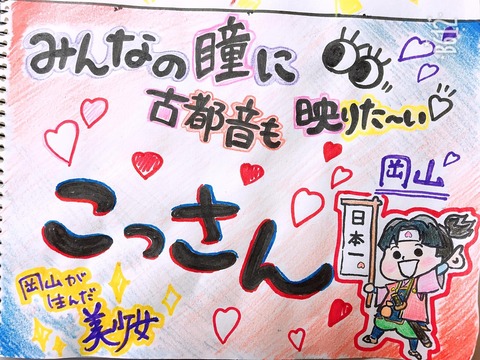 みんなの瞳に
古都音も映りた〜い♡
こっさん
岡山
日本一
岡山が
生んだ
美少女